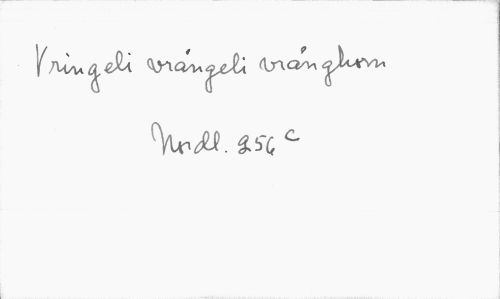 Vringeli vrångeli vrånghorn
Nordl. 256 c